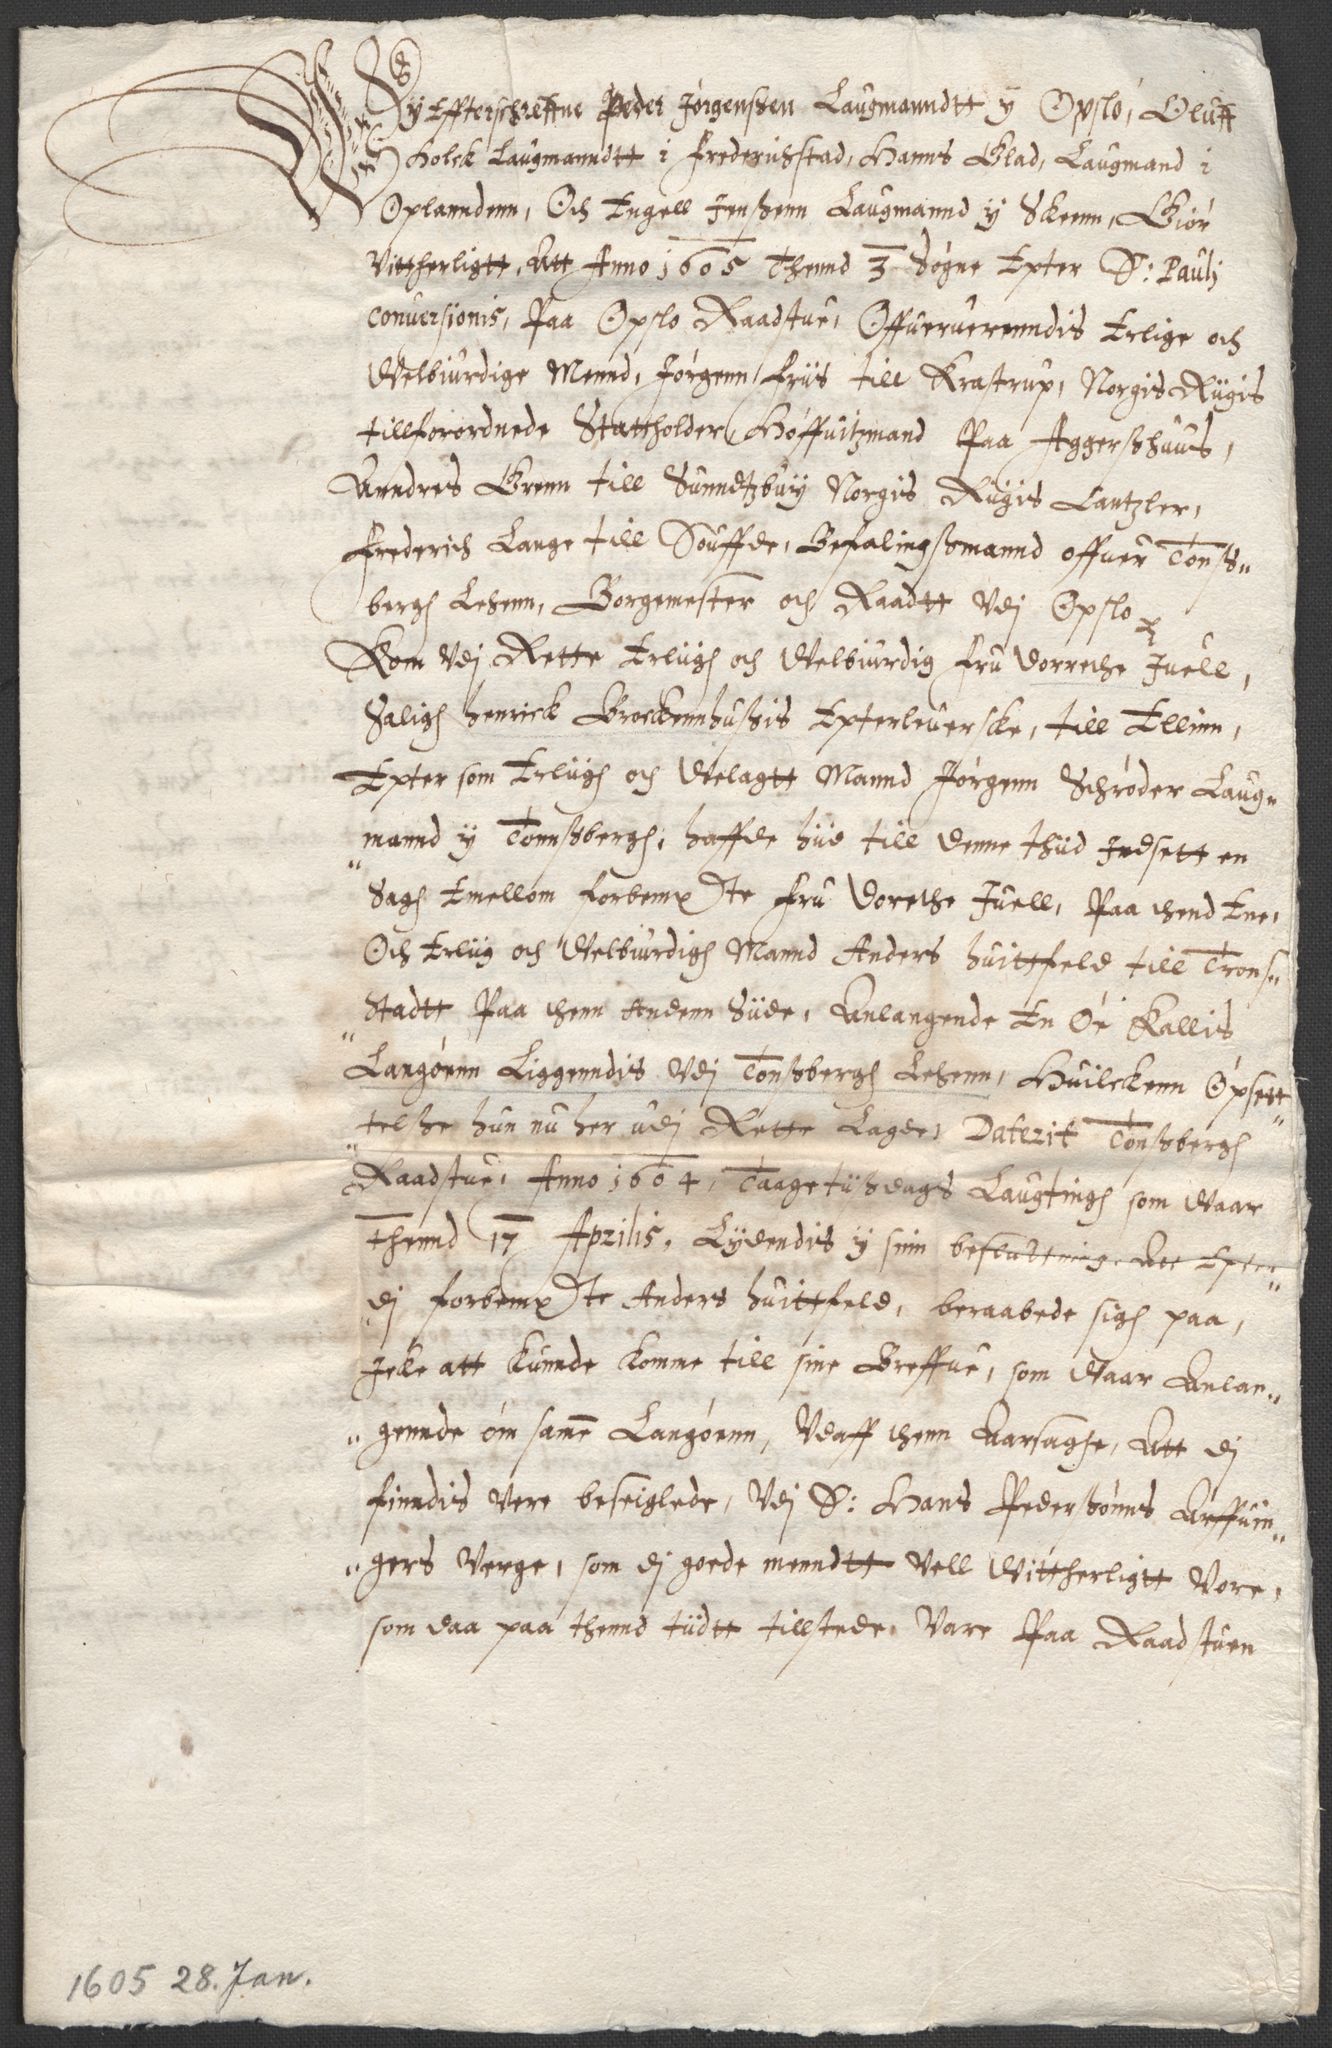 Wy Effterschreffne Peder Jørgenssen Laugmanndtt y Opslo, Oluff
Holck Laugmanndtt i Frederichstad, Hanns Glad, Laugmand i
Oplanndenn, Och Engell Jenssenn Laugmannd y Skeenn, Giør
Vittherligtt, Att Anno 1605 Thennd 3 Søgne Epter S: Paulj
Conuersionis, Paa Opslo Raadstue, Offueruerenndis Erlige och
Welbiurdige Mennd, Jørgenn Friis till Krastrup, Norgis Riigis
tillforordnede Stattholder, Høffuitzmand Paa Aggershuus,
Anndres Grenn till Sunndtzbuy Norgis Riigis Cantzler,
Frederich Lange till Souffde, Befalingssmannd offuer Tonss„
bergh Lehenn, Borgemester och Raadtt Vdj Opslo
Kom Vdj Rette Erliigh och Welbiurdig Fru Dorrethe Juell,
Saligh Henrick Brockennhussis Epterleuerske, till Ellinn,
Epter som Erliigh och Welagtt Mannd Jørgenn Schrøder Laug„
„mannd y Tonnssbergh, haffde hiid till denne thiid Indsett en
Sagh Emellom forbemelte Fru Dorethe Juell, Paa thend Ene,
Och Erliig och Welbiurdigh Mannd Anders Huittfeld till Trons„
„Stadtt Paa thenn Andenn Siide, Anlangende En Øe Kallis
Langøenn Liggenndis Vdj Tonssbergh Lehenn, Huilckenn Opsett„
„telsse hun nu her udj Rette Lagde, Daterit Tonssbergh
Raadstue, Anno 1604, Taagetiissdags Laugtingh som Waar
Thennd 17 Aprilis, Lydendis y sin besluttning, Att Epter„
„dj forbemelte Anders Huittfeld, beraabede sigh paa,
Icke att kunnde komme till sine Breffue, som Waar Anlan„
„gennde om samme Langøenn, Vdaff thenn Aarsaghe, Att dj
finndis Vere beseiglede, Vdj S: Hans Pederssønns Arffuin„
„gers Verge, som dj goede menndtt Vell Wittherligtt Vore,
som daa paa thennd tiidtt tillstede, Vare Paa Raadstuen
1605 28. Jan.